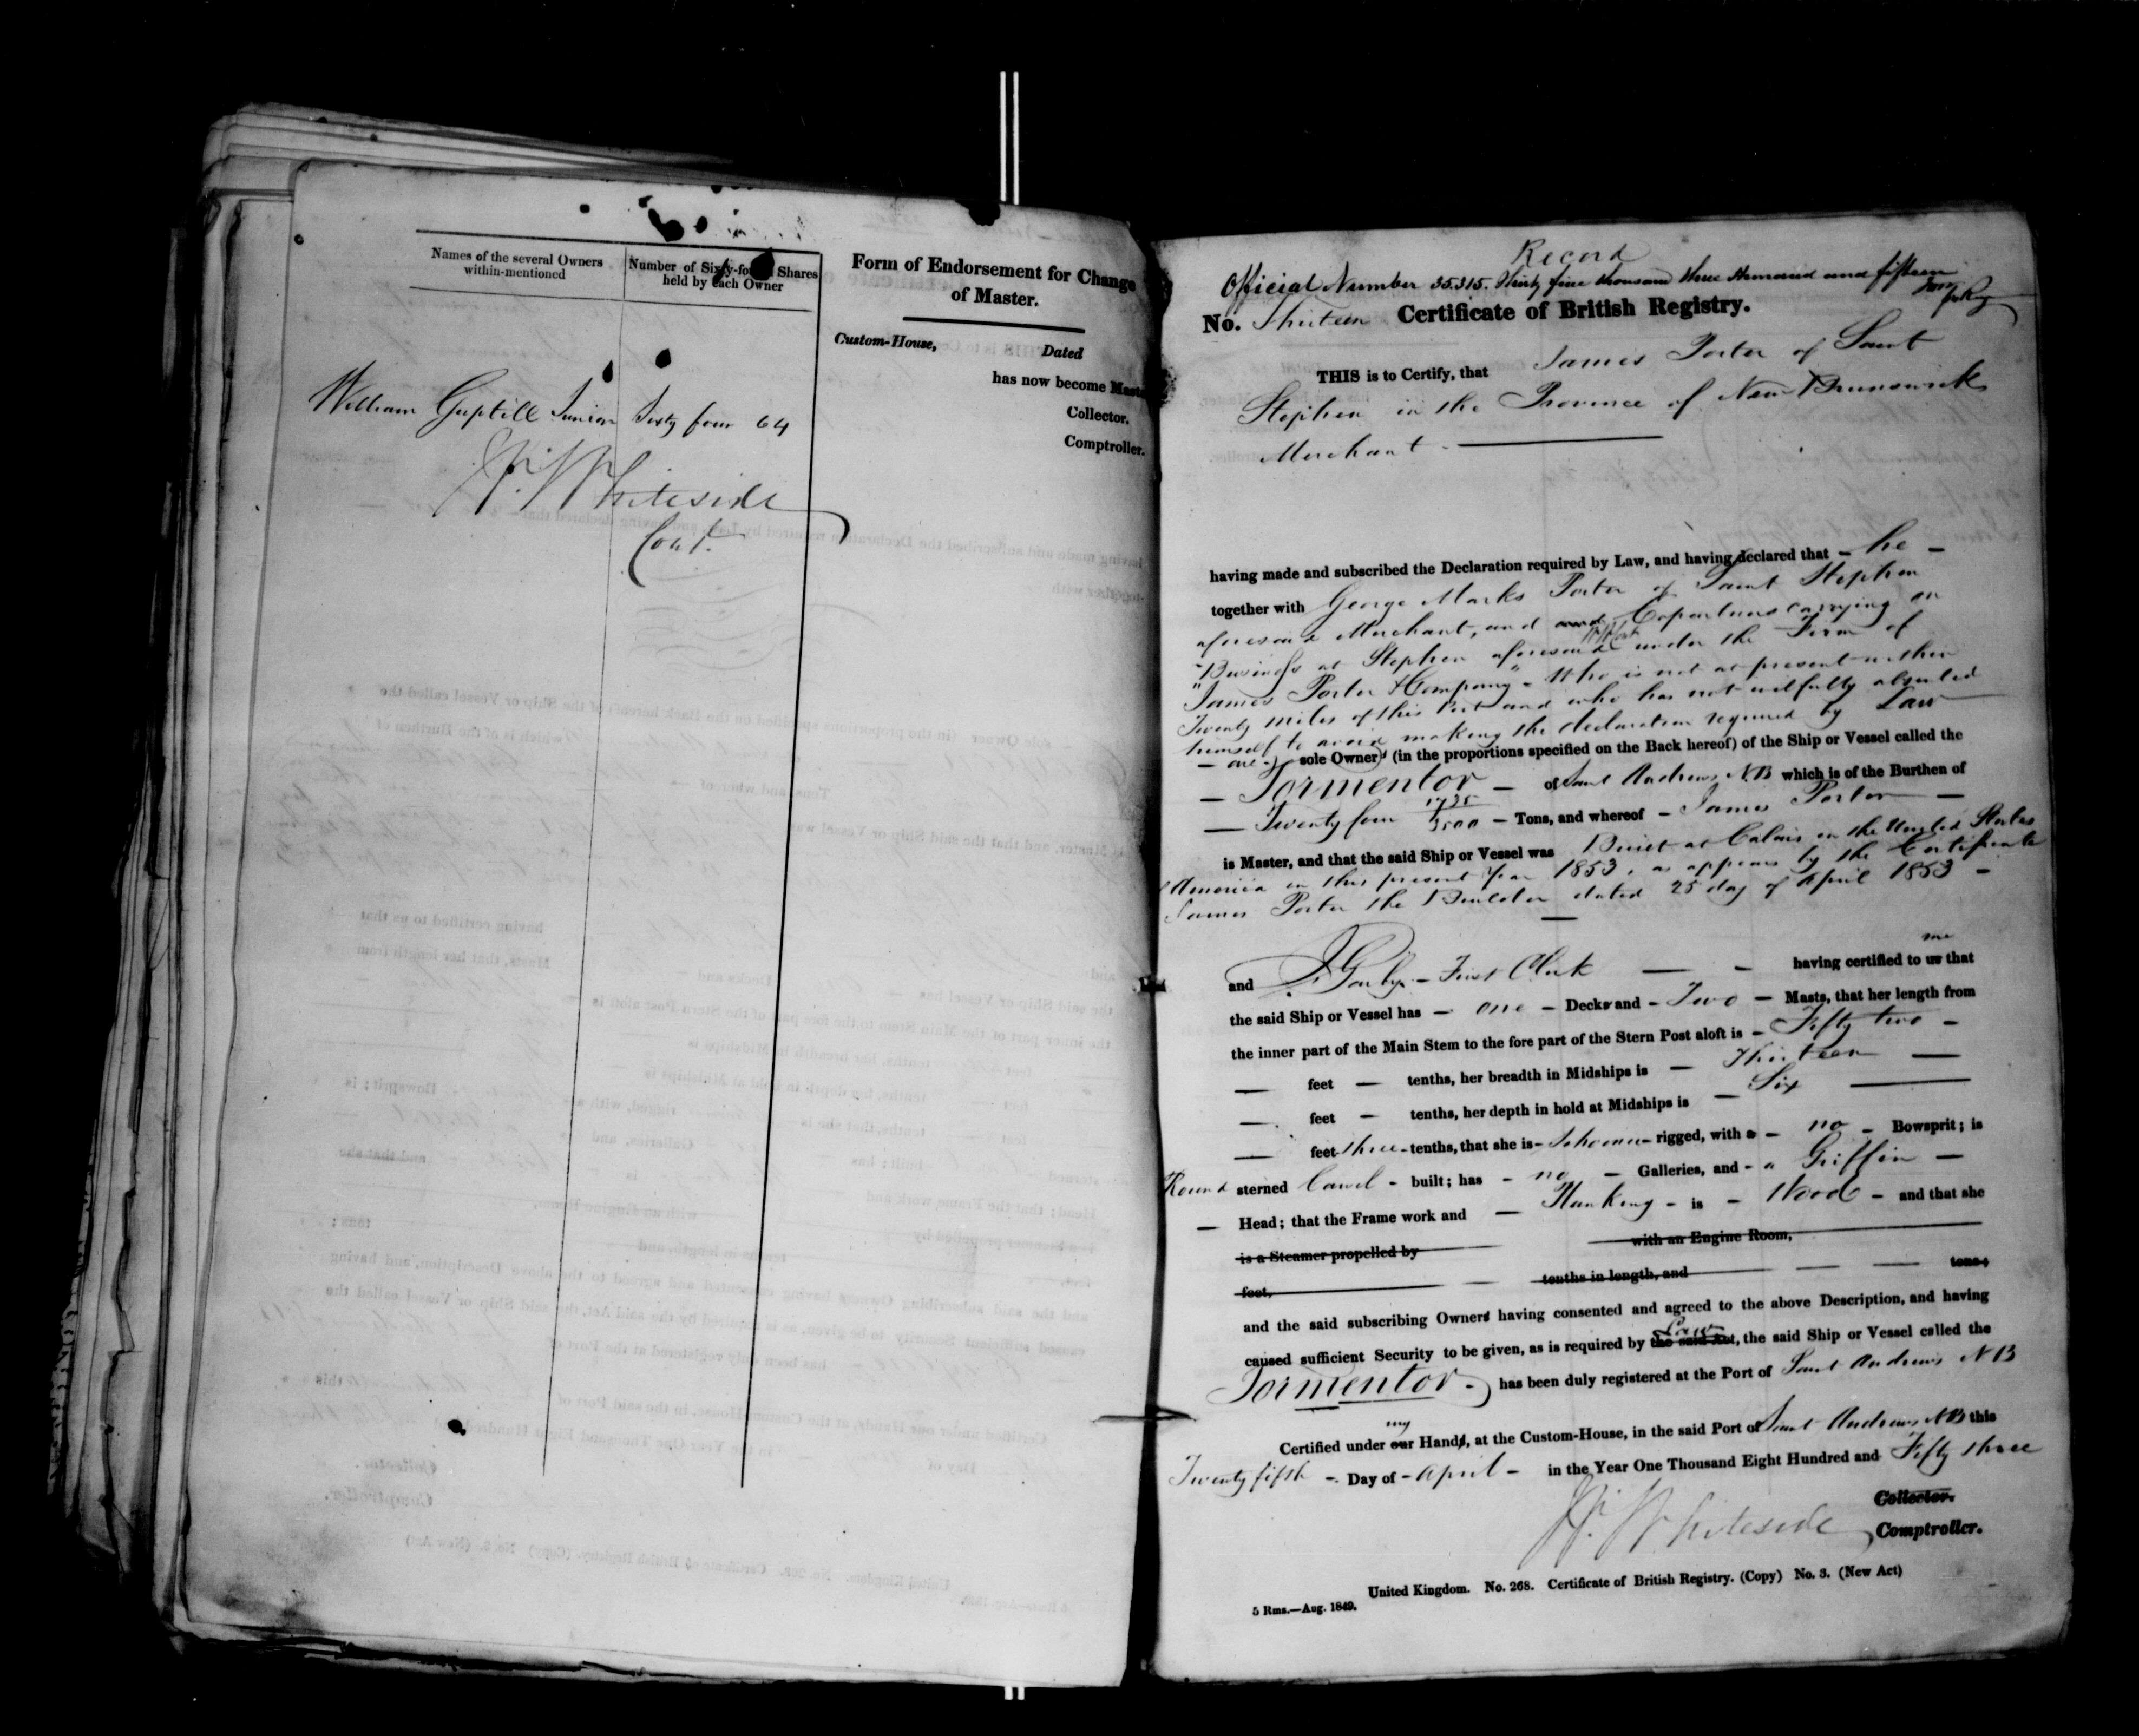 Names of the several Owners
within-mentioned
Number of Sixty-fourth Shares
held by each Owner
William Guptill Junior Sixty four 64
W. Whiteside
Cont.
Form of Endorsement for Change
of Master.
Custom-House, Dated
has now become Master
Collector.
Comptroller.
Record
Official Number 35.315. Thirty five thousand three hundred and fifteen
No. Thirteen Certificate of British Registry.
THIS is to Certify, that James Porter of Saint
Stephen in the Province of New Brunswick
Merchant
having made and subscribed the Declaration required by Law, and having declared that - he -
together with George Marks Porter of Saint Stephen
aforesaid Merchant, and Copartners carrying on
Business at Stephen aforesaid under the Firm of
"James Porter & Company" - Who is not at present within
Twenty miles of this Port and who has not wilfully absented
himself to avoid making the declaration required by Law
- are - sole Owners (in the proportions specified on the Back hereof) of the Ship or Vessel called the
- Tormentor - of Saint Andrews NB which is of the Burthen of
- Twenty four 1725/3500 - Tons, and whereof - James Porter -
is Master, and that the said Ship or Vessel was Built at Calais in the United States
America in this present year 1853, as appears by the Certificate
James Porter the Builder dated 25 day of April 1853 -
and - First Clerk - having certified to us me that
the said Ship or Vessel has - one - Decks and - Two - Masts, that her length from
the inner part of the Main Stem to the fore part of the Stern Post aloft is - Fifty two -
feet - tenths, her breadth in Midships is - Thirteen -
feet - tenths, her depth in hold at Midships is - Six
feet three tenths, that she is - Schooner - rigged, with a - no - Bowsprit; is
Round sterned Carvel - built; has - no - Galleries, and - a Griffin -
- Head; that the Frame work and - Planking - is - Wood - and that she
is a Steamer propelled by with an Engine Room,
feet, tenths in length, and tons;
and the said subscribing Owners having consented and agreed to the above Description, and having
caused sufficient Security to be given, as is required by the said Act, Law the said Ship or Vessel called the
Tormentor - has been duly registered at the Port of Saint Andrews NB
Certified under our my Hands, at the Custom-House, in the said Port of Saint Andrews NB this
Twenty fifth - Day of - April - in the Year One Thousand Eight Hundred and Fifty three
W. Whiteside
Collector.
Comptroller.
United Kingdom. No. 268. Certificate of British Registry. (Copy) No. 3. (New Act)
5 Rms.—Aug. 1849.